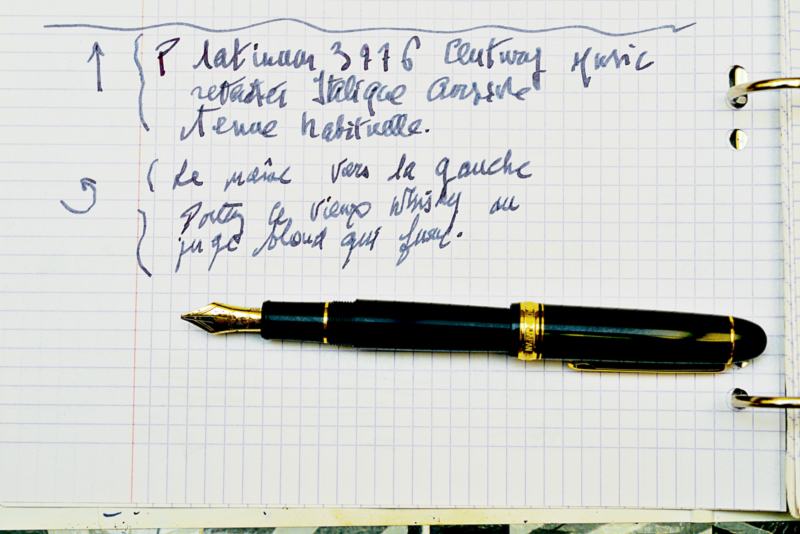 Platinum 3776 Century Music
retaillée Italique Cursive
tenue habituelle.
Le même vers la gauche
Portez ce vieux whisky au
juge blond qui fume.